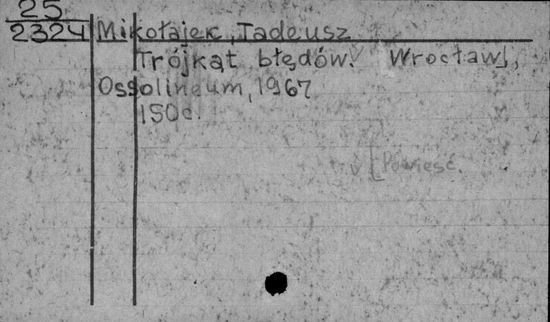 25
2324 Mikołajek, Tadeusz
Trójkąt błędów. Wrocław,
Ossolineum, 1967
150c.
[Powieść.